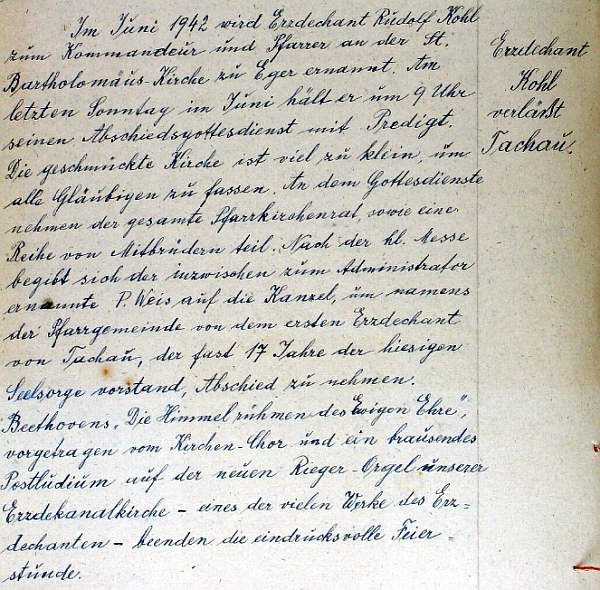 Im Juni 1942 wird Erzdechant Rudolf Kohl
zum Kommandeur und Pfarrer an der St.
Bartholomäus-Kirche zu Eger ernannt. Am
letzten Sonntag im Juni hält er um 9 Uhr
seinen Abschiedsgottesdienst mit Predigt.
Die geschmückte Kirche ist viel zu klein, um
alle Gläubigen zu fassen. An dem Gottesdienste
nehmen der gesamte Pfarrkirchenrat, sowie eine
Reihe von Mitbrüdern teil. Nach der hl. Messe
begibt sich der inzwischen zum Administrator
ernannte P. Weis auf die Kanzel, um namens
der Pfarrgemeinde von dem ersten Erzdechant
von Tachau, der fast 17 Jahre der hiesigen
Seelsorge vorstand, Abschied zu nehmen.
Beethovens „Die Himmel rühmen des Ewigen Ehre“,
vorgetragen vom Kirchen-Chor und ein brausendes
Postludium auf der neuen Rieger-Orgel unserer
Erzdekanalkirche – eines der vielen Werke des Erz=
dechanten – beenden die eindrucksvolle Feier=
stunde.
Erzdechant
Kohl
verläßt
Tachau.